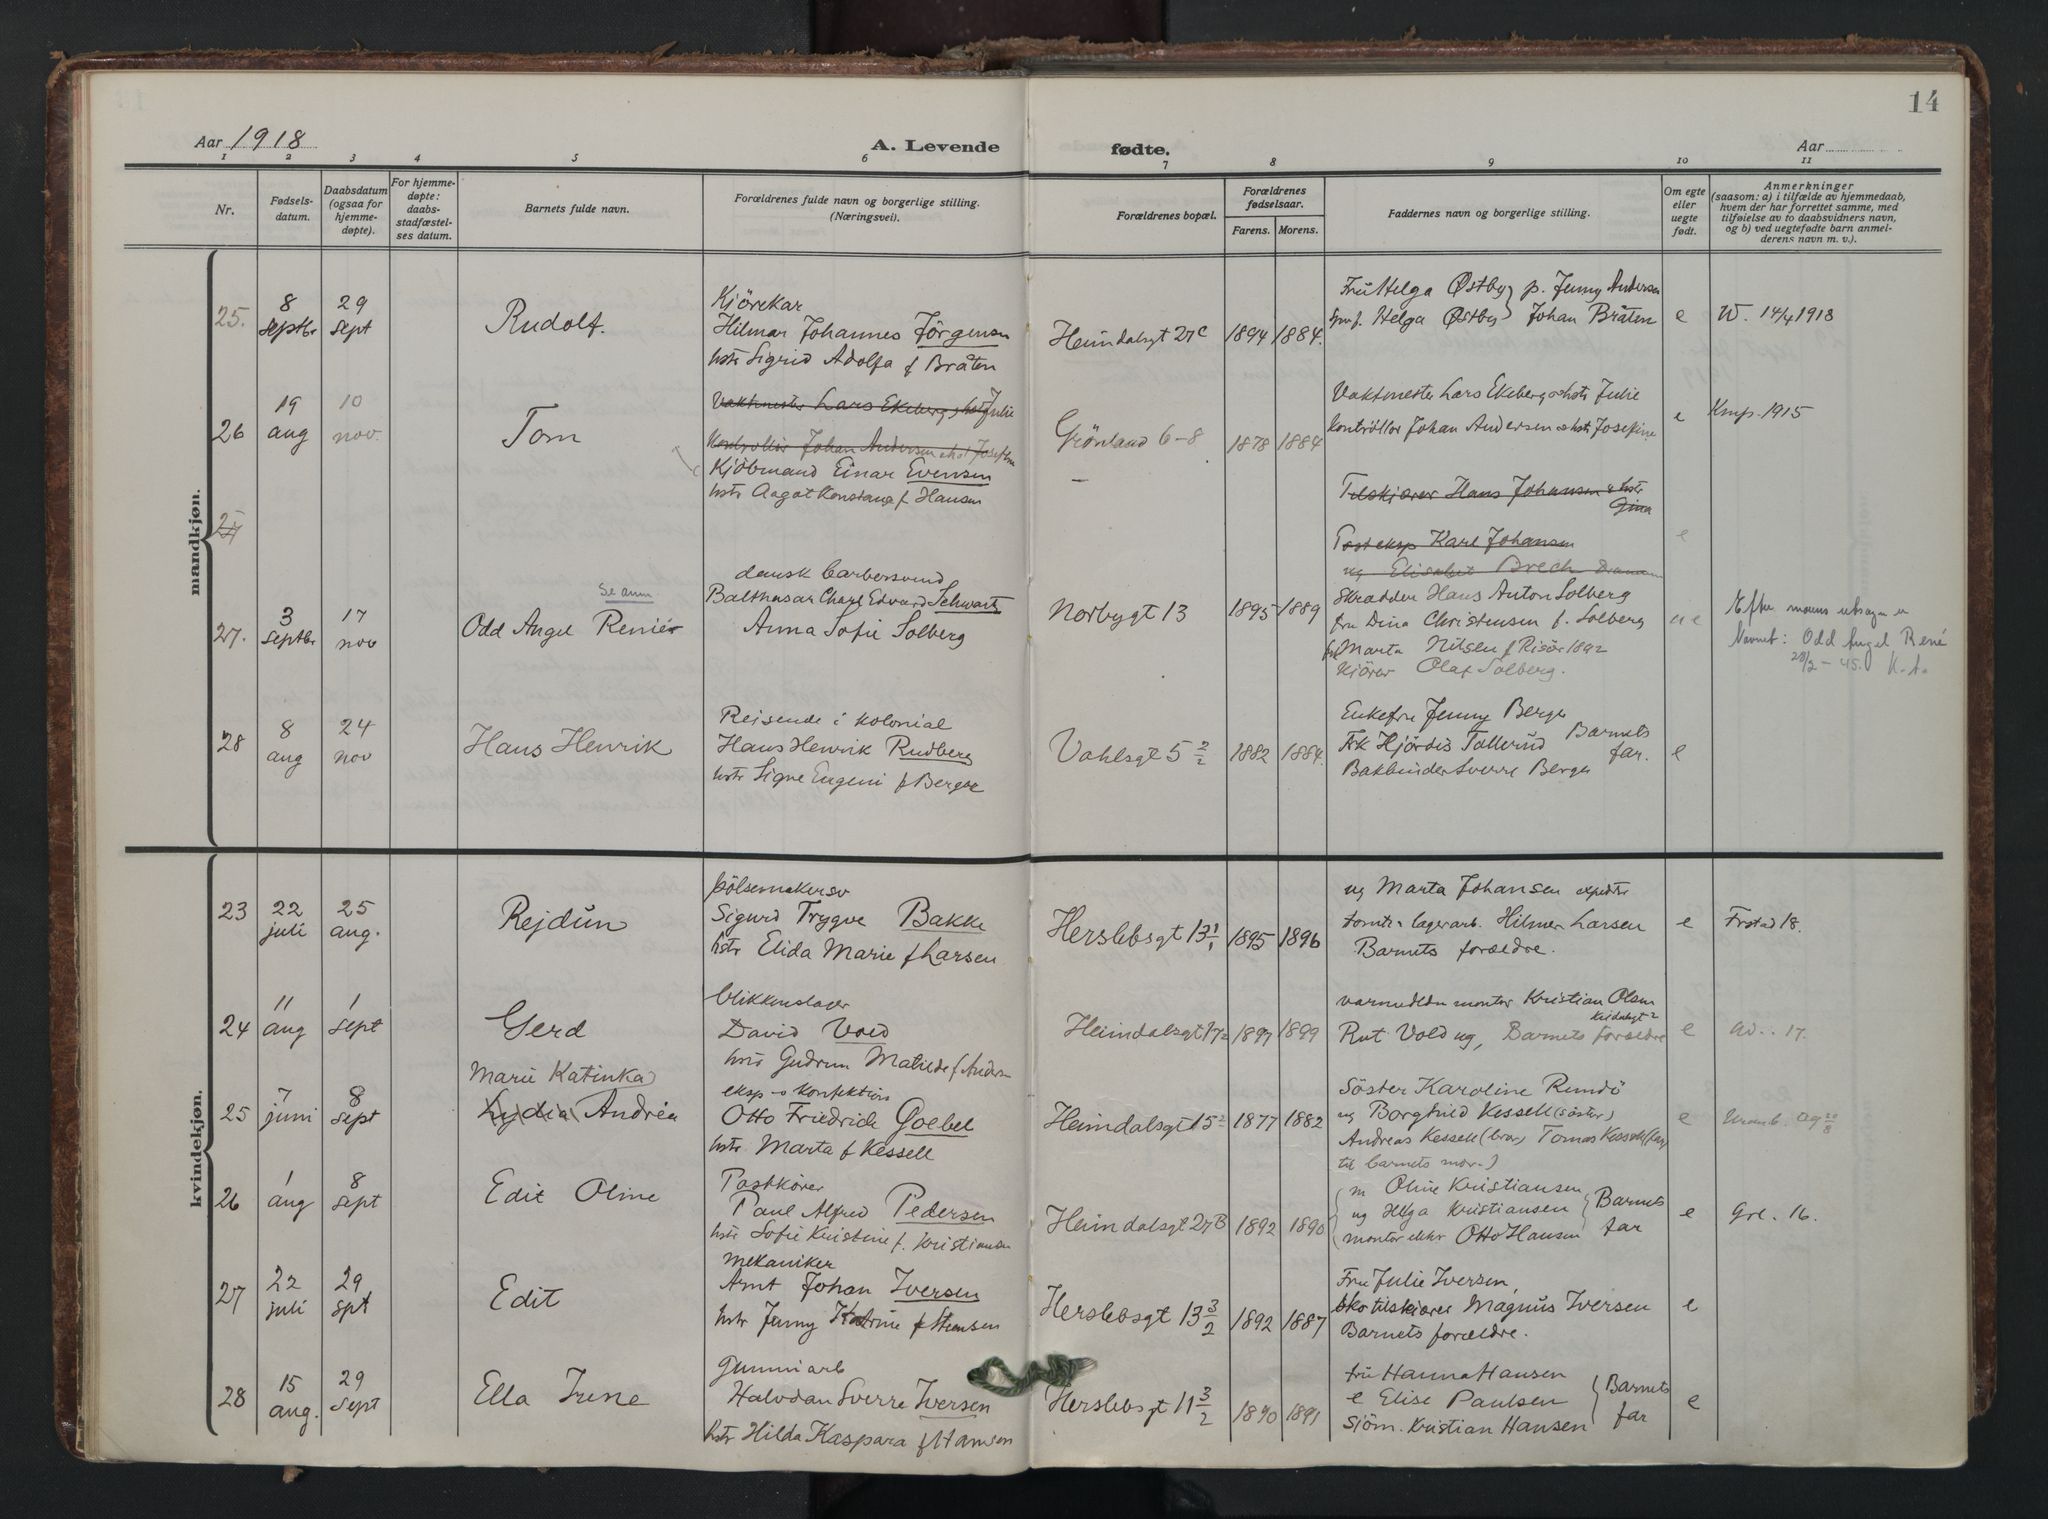 14
Aar 1918
A. Levende fødte.
Aar
1 2 3 4 5 6 7 8 9 10 11
Nr.
Fødsels-
datum.
Daabsdatum
(ogsaa for
hjemme-
døpte).
For hjemme-
døpte:
daabs-
stadfæstel-
ses datum.
Barnets fulde navn.
Forældrenes fulde navn og borgerlige stilling.
(Næringsvei).
Forældrenes bopæl.
Forældrenes
fødselsaar.
Farens. Morens.
Faddernes navn og borgerlige stilling.
Om egte
eller
uegte
født.
Anmerkninger
(saasom: a) i tilfælde av hjemmedaab,
hvem der har forrettet samme, med
tilføielse av to daabsvidners navn,
og b) ved uegtefødte barn anmel-
derens navn m. v.).
mandkjøn.
25. 8 septbr 29 sept
Rudolf.
Kjörekar
Hilmar Johannes Jörgensen
hstr Sigrid Adolfa f Bråten
Heimdalsgt 27C 1894 1884.
Fru Helga Östby p. Jenny Andersen
Helga Östby Johan Bråten
e
W. 14/4 1918
26 19 aug 10 nov.
Tom
Vaktmester Lars Ekeberg, hstr Julie
Kontrollör Johan Andersen hst Josefine
Kjöbmand Einar Evensen
hstr Aagot Konstanse f Hansen
Grönland 6-8 1878 1884
Vaktmester Lars Ekeberg hstr Julie
Kontröllör Johan Andersen hstr Josefine
e
Kmp. 1915
Tilskjærer Hans Johansen hstr
Gina
Posteksp Karl Johansen
ug Elisabet Brech
e
27. 3 septbr 17 nov
Se anm.
Odd Angel Renier
dansk barbersvend
Balthasar Charl Edvard Schwartz
Anna Sofie Solberg
Norbygt 13 1895 1889
Skrædder Hans Anton Solberg
fru Dina Christensen f. Solberg
Marta Nilsen f Risör 1892
Kjörer Olaf Solberg.
ue
Efter mors utsagn er
Navnet: Odd Angel René
28/2 - 45. K.A.
28 8 aug 24 nov
Hans Henrik
Reisende i kolonial
Hans Henrik Rudberg
hstr Signe Eugeni f Berge
Vahlsgt 5 2/2 1882 1884.
Enkefru Jenny Berge
Frk Hjördis Tollerud
Bakbinder Sverre Berge
Barnets
far.
e
kvindekjøn.
23 22 juli 25 aug.
Rejdun
pölsemakersv
Sigurd Trygve Bakke
hstr Elida Marie f Larsen
Herslebsgt 13 1/1 1895 1896
ug Marta Johansen expedtr
tomter lagerarb. Hilmer Larsen
Barnets forældre.
e
Frstad 18.
24 11 aug 1 sept
Gerd
blikkenslager
David Vold
hstr Gudrun Matilde f Anders
Heimdalsgt 17 2 1897 1899
varmeldn montör Kristian Olsen
Rut Vold ug, Barnets forældre
e
17.
25 7 juni 8 sept
Marie Katinka
Lydia Andréa
eksp konfektion
Otto Friedrich Goebel
hstr. Marta f Kessell
Heimdalsgt 15 2 1877 1882
Söster Karoline Rundö
ug Borghild Kessell (söster)
Andreas Kessell (bror) Tomas Kessell (far)
til barnets mor.)
e
26 1 aug 8 sept
Edit Oline
Postkörer
Paul Alfred Pedersen
hstr Sofie Kristine f. Kristiansen
Heimdalsgt 27B 1892 1890
m Oline Kristiansen
ug Helga Kristiansen
montör elektr Otto Hansen
Barnets
far
e
Grl. 16.
27 22 juli 29 spt
Edit
mekaniker
Arnt Johan Iversen
hstr Jenny Katrine f Stensen
Herslebsgt 13 3/2 1892 1887
Fru Julie Iversen
Skotilskjærer Magnus Iversen
Barnets forældre.
e
28 15 aug. 29 sept
Ella Irene
Gummiarb
Halvdan Sverre Iversen
hstr Hilda Kaspara f Hansen
Herslebsgt 11 3/2 1890 1891
fru Hanna Hansen
e Elise Paulsen
Sjöm. Kristian Hansen
Barnets
far
e